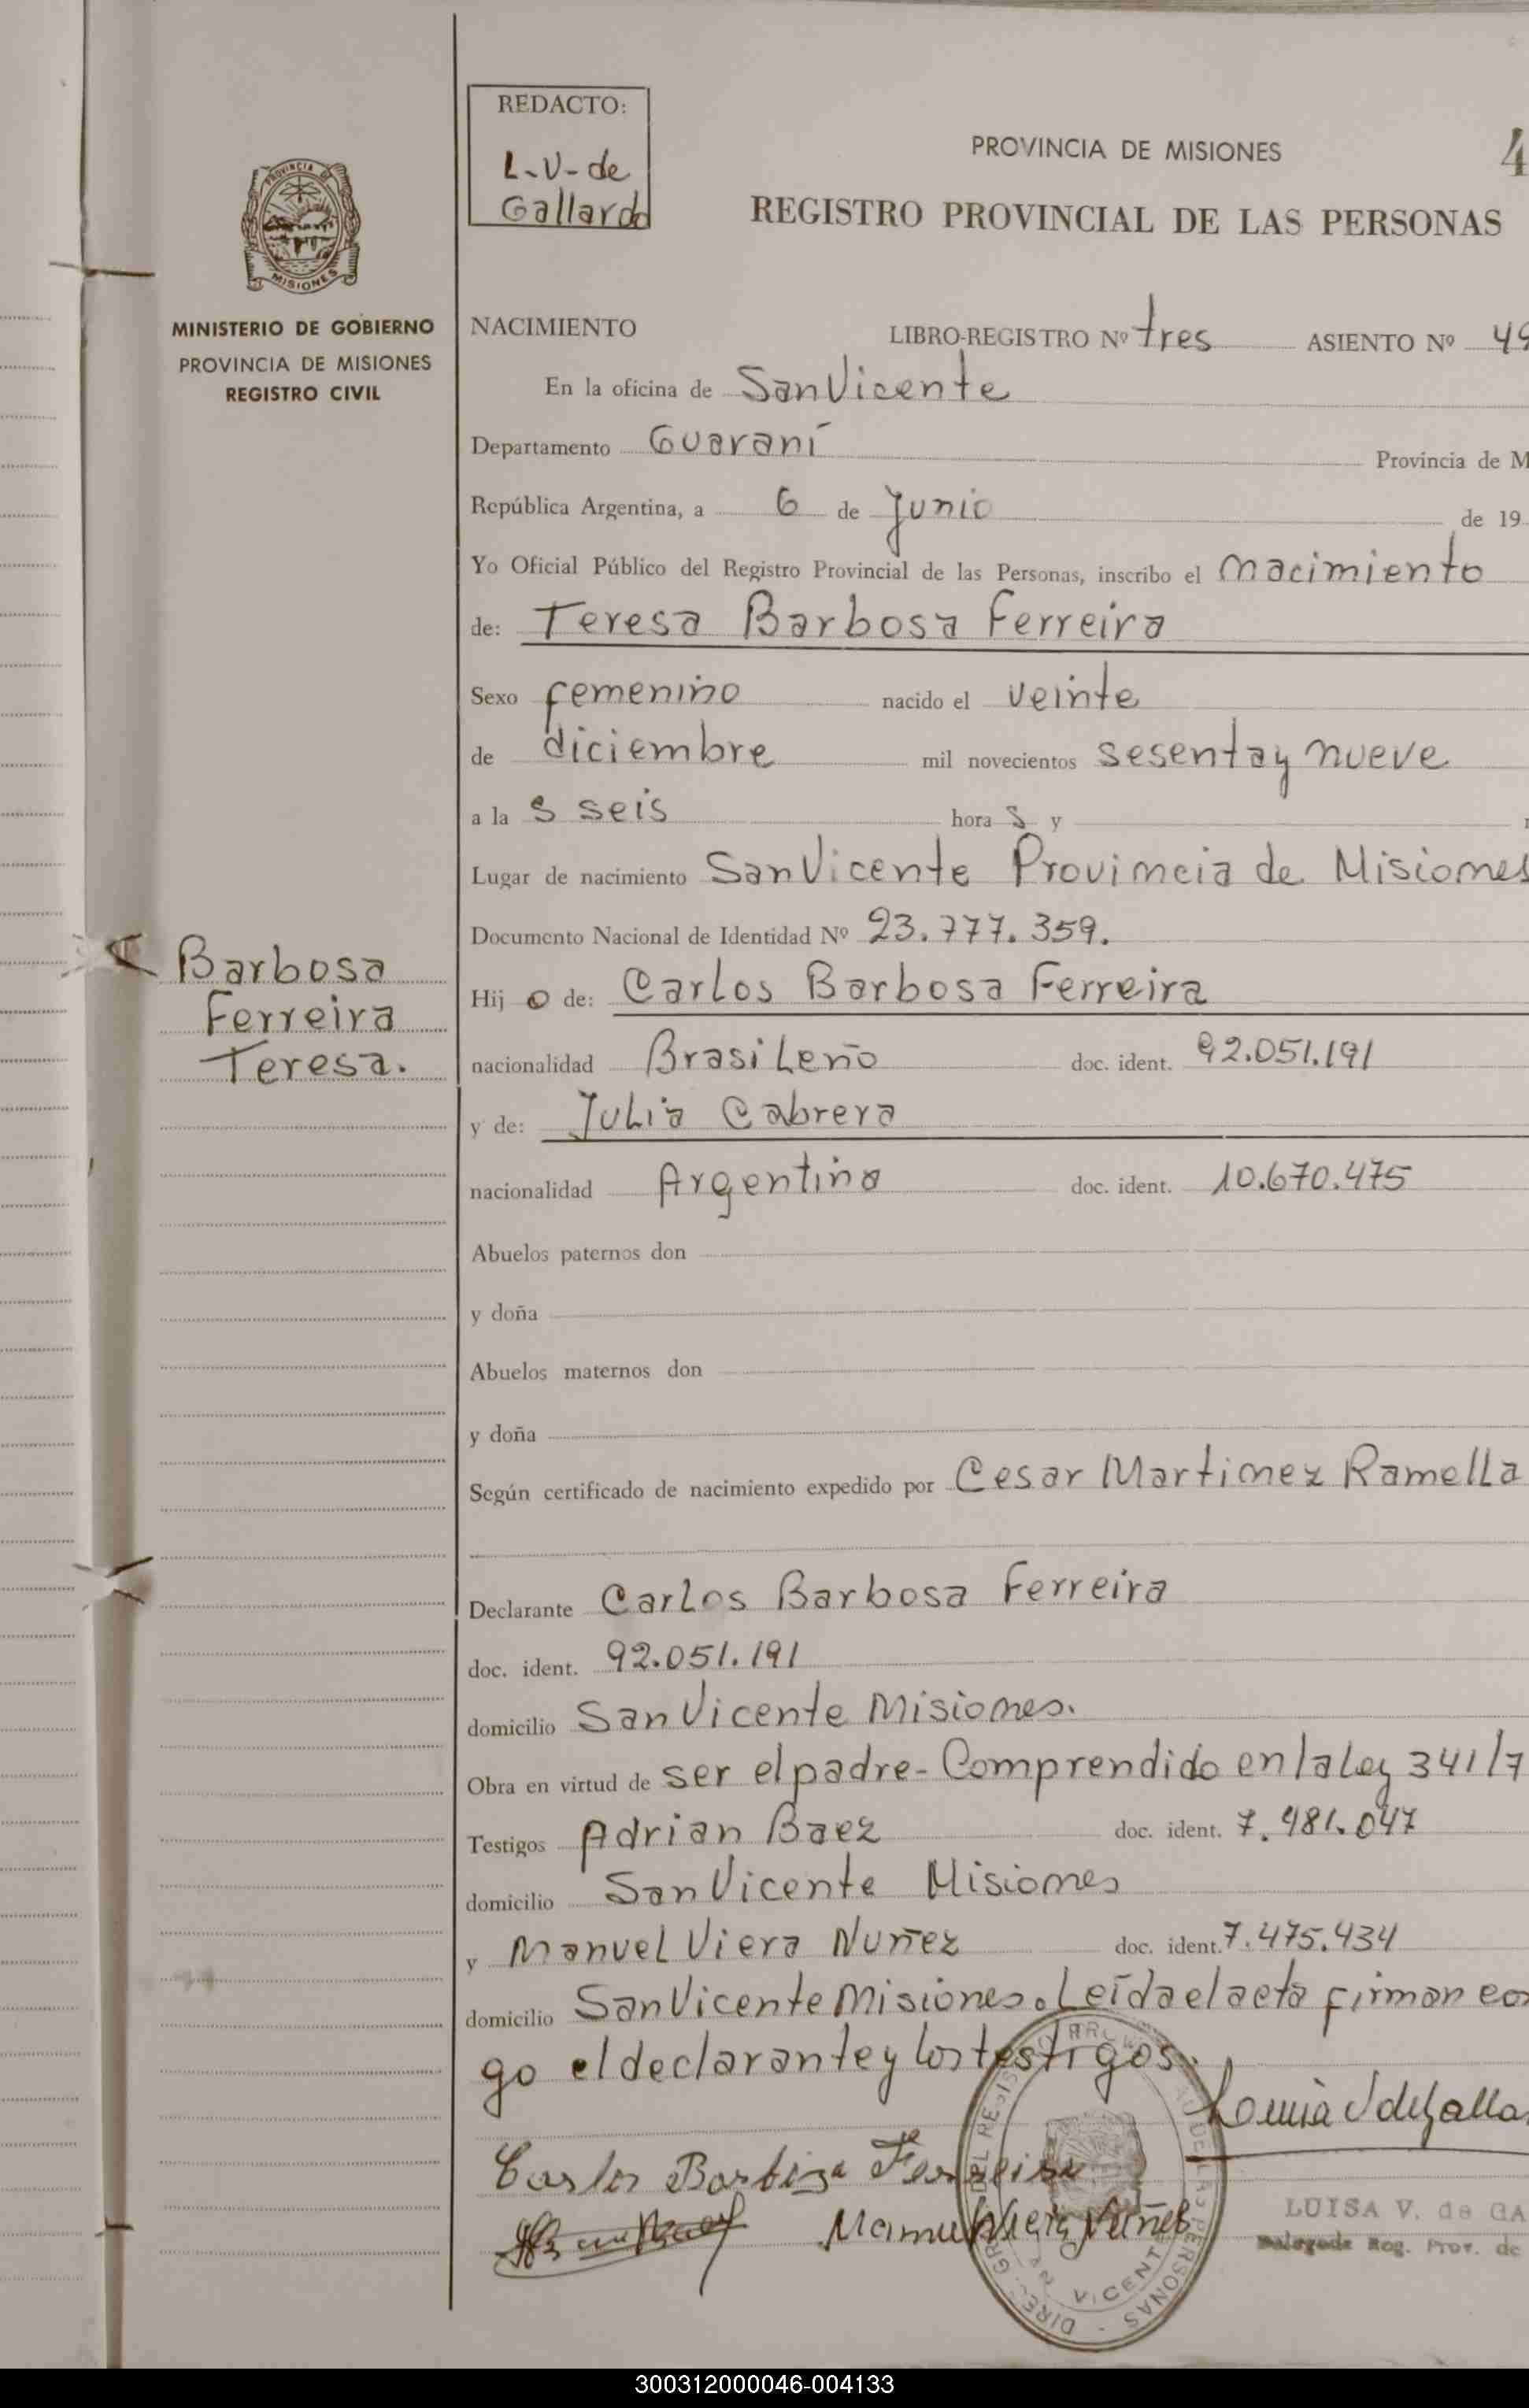 REDACTO:
L-V-de
Gallardo
PROVINCIA DE MISIONES
4
REGISTRO PROVINCIAL DE LAS PERSONAS
PROVINCIA DE
MISIONES
MINISTERIO DE GOBIERNO
PROVINCIA DE MISIONES
REGISTRO CIVIL
NACIMIENTO LIBRO-REGISTRO Nº tres ASIENTO Nº 49
En la oficina de San Vicente
Departamento Guaraní Provincia de M
República Argentina, a 6 de Junio de 19
Yo Oficial Público del Registro Provincial de las Personas, inscribo el nacimiento
de: Teresa Barbosa Ferreira
Sexo femenino nacido el veinte
de diciembre mil novecientos sesenta y nueve
a la s seis hora s y
Lugar de nacimiento San Vicente Provincia de Misiones
Documento Nacional de Identidad Nº 23.777.359.
Barbosa
Ferreira
Teresa.
Hij o de: Carlos Barbosa Ferreira
nacionalidad Brasileño doc. ident. 92.051.191
y de: Julia Cabrera
nacionalidad Argentina doc. ident. 10.670.475
Abuelos paternos don
y doña
Abuelos maternos don
y doña
Según certificado de nacimiento expedido por Cesar Martinez Ramella
Declarante Carlos Barbosa Ferreira
doc. ident. 92.051.191
domicilio San Vicente Misiones.
Obra en virtud de ser el padre- Comprendido en la Ley 341/7
Testigos Adrian Baez doc. ident. 7.481.047
domicilio San Vicente Misiones
y Manuel Viera Nuñez doc. ident. 7.475.434
domicilio San Vicente Misiones. Leída el acta firman con
go el declarante y los testigos.
Carlos Barbosa Ferreira
Manuel Viera Nuñes
LUISA V. de GA
Delegada Reg. Prov. de
300312000046-004133